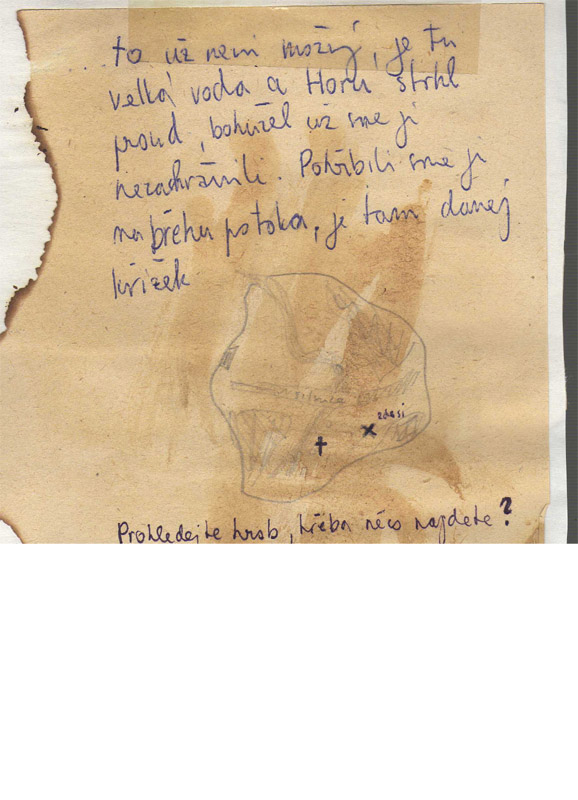 to už není možný, je tu
velká voda a Horu strhl
proud, bohužel už sme ji
nezachránili. Pohřbili sme ji
na břehu potoka, je tam danej
křížek
silnice
zdesi
Prohledejte hrob, třeba něco najdete?